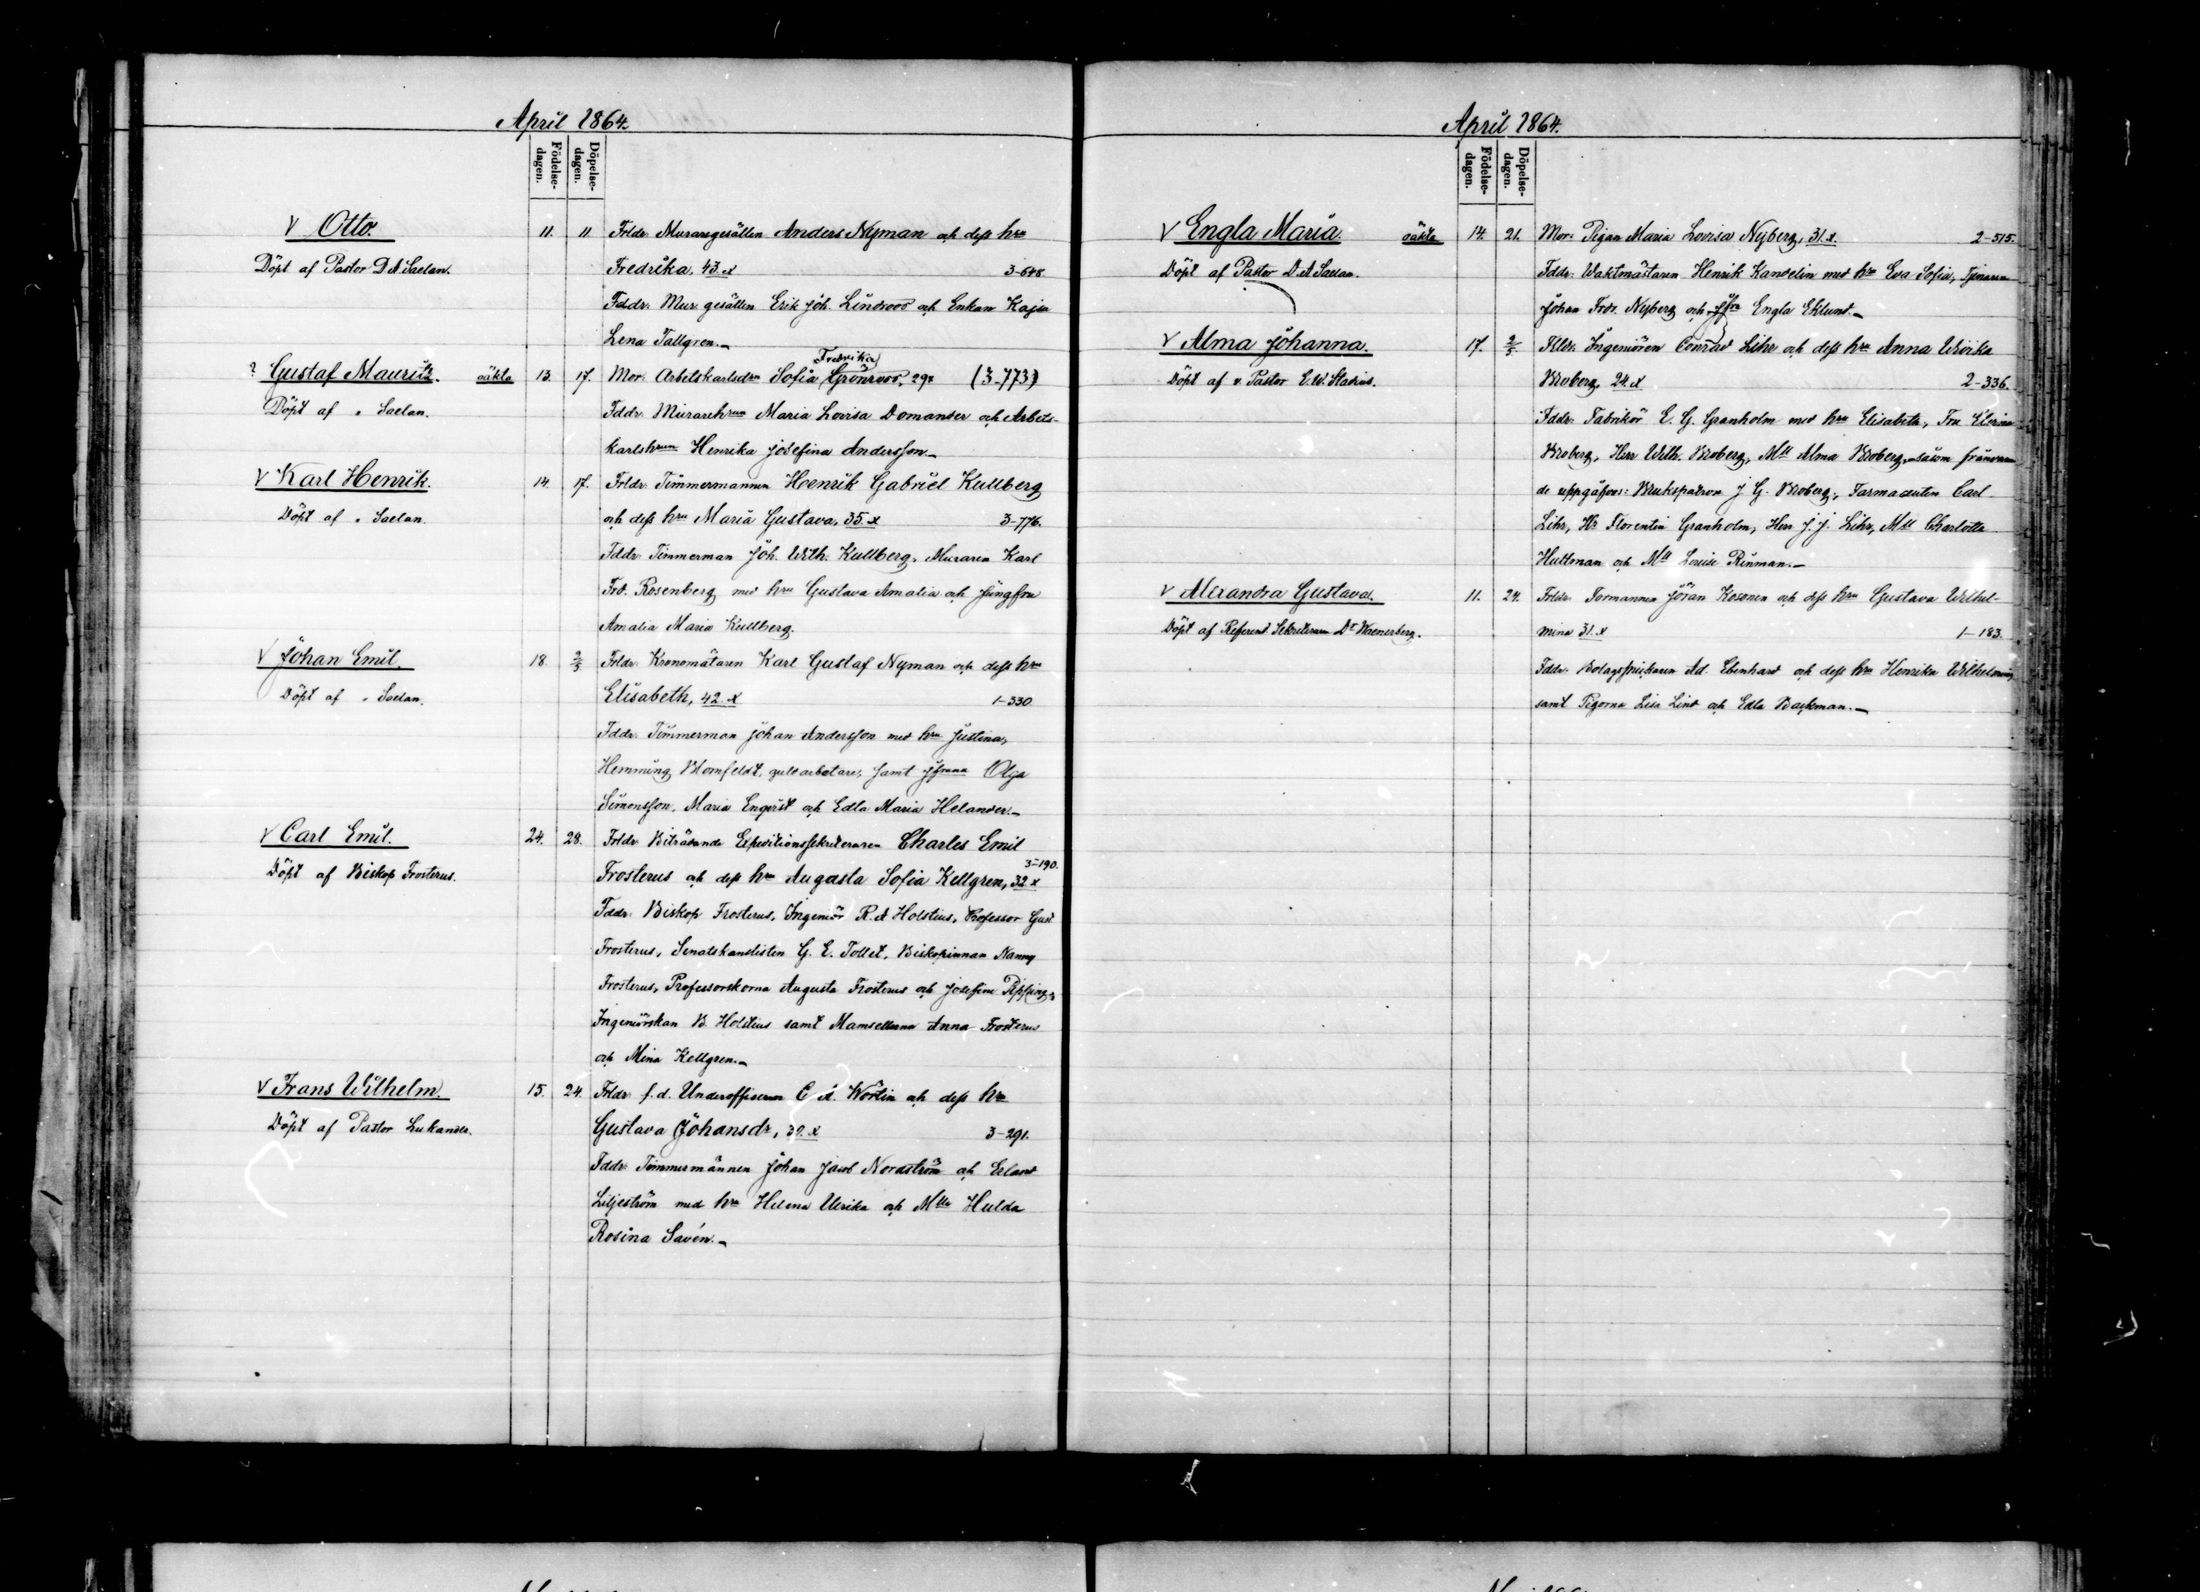 April 1864.
Födelse-dagen.
Döpelse-dagen.
Otto. 11. 11 Frldr. Muraregesällen Anders Nyman och dess hru
Döpt af Pastor D A Saelan. Fredrika, 43. x 3-648
Fddr. Mur gesällen Erik Joh. Lindroos och Enkan Kajsa
Lena Tallgren.
Fredrika
? Gustaf Mauritz. oäkta 13. 17. Mor. Arbetskarlsdn Sofia Grönroos, 29x (3-773)
Döpt af " Saelan. Fddr. Murarehrun Maria Lovisa Domander och Arbets-
karlshrun Henrika Josefina Andersson
Karl Henrik. 14. 17. Frldr. Timmermannen Henrik Gabriel Kullberg
Döpt af " Saelan. och dess hru Maria Gustava, 35. x 3-776.
Fddr. Timmerman Joh. Wilh. Kullberg, Muraren Karl
Frd. Rosenberg med hru Gustava Amalia och Jungfru
Amalia Maria Kullberg.
Johan Emil. 18. 2/5 Frldr. Kronomätaren Karl Gustaf Nyman och dess hru
Döpt af " Saelan. Elisabeth, 42. x 1-330
Fddr. Timmerman Johan Andersson med hru Justina,
Hemming Blomfeldt, guldarbetare, samt Jfrna Olga
Simonsson, Maria Enqvist och Edla Maria Helander.
Carl Emil. 24. 28. Frldr. Biträdande Expeditionssekreteraren Charles Emil
Döpt af Biskop Frosterus. Frosterus och dess hru Augusta Sofia Kellgren, 32 x 3-190.
Fddr. Biskop Frosterus, Ingeniör R. A Holstius, Professor Gust
Frosterus, Senatskanslisten G. E. Tollet, Biskopinnan Nanny
Frosterus, Professorskorna Augusta Frosterus och Josefine Pipping,
Ingeniörskan B. Holstius samt Mamsellerna Anna Frosterus
och Mina Kellgren.
Frans Wilhelm. 15. 24. Frldr. f. d. Underofficeren C A. Wörlin och dess hru
Döpt af Pastor Lukander. Gustava Johansdr, 30. x 3-291.
Fddr. Timmermännen Johan Jacob Nordström och Erland
Liljeström med hru Helena Ulrika och Mlle Hulda
Rosina Savén.
April 1864.
Födelse-dagen.
Döpelse-dagen.
Engla Maria. oäkta 14. 21. Mor: Pigan Maria Lovisa Nyberg, 31. x. 2-515.
Döpt af Pastor D. A Saelan. Fddr. Waktmästaren Henrik Kandelin med hru Eva Sofia, Tjenaren
Johan Frdr. Nyberg och Jfru Engla Eklund.
Alma Johanna. 17. 2/5 Frldr. Ingeniören Conrad Lihr och dess hru Anna Ulrika
Döpt af v. Pastor E. W. Stadius. Broberg, 24. x 2-336.
Fddr. Fabrikör E. G. Granholm med hru Elisabeth, Fru
Broberg, Herr Wilh. Broberg, Mll Alma Broberg, såsom frånvaran
de uppgåfvos: Brukspatron J G. Broberg, Farmaceuten Carl
Lihr, Hr Florentin Granholm, Herr J. J. Lihr, Mll Charlotte
Hultman och Mll Louise Rinman.
Alexandra Gustava. 11. 24. Frldr. Formannen Jöran Kosonen och dess hru Gustava Wilhel-
Döpt af Referend. Sekreteraren Dr Waenerberg. mina 31. x 1-183.
Fddr. Ad. Ebenhard och dess hru Henrika Wilhelmina,
samt Pigorna Lisa Lind och Edla Backman.